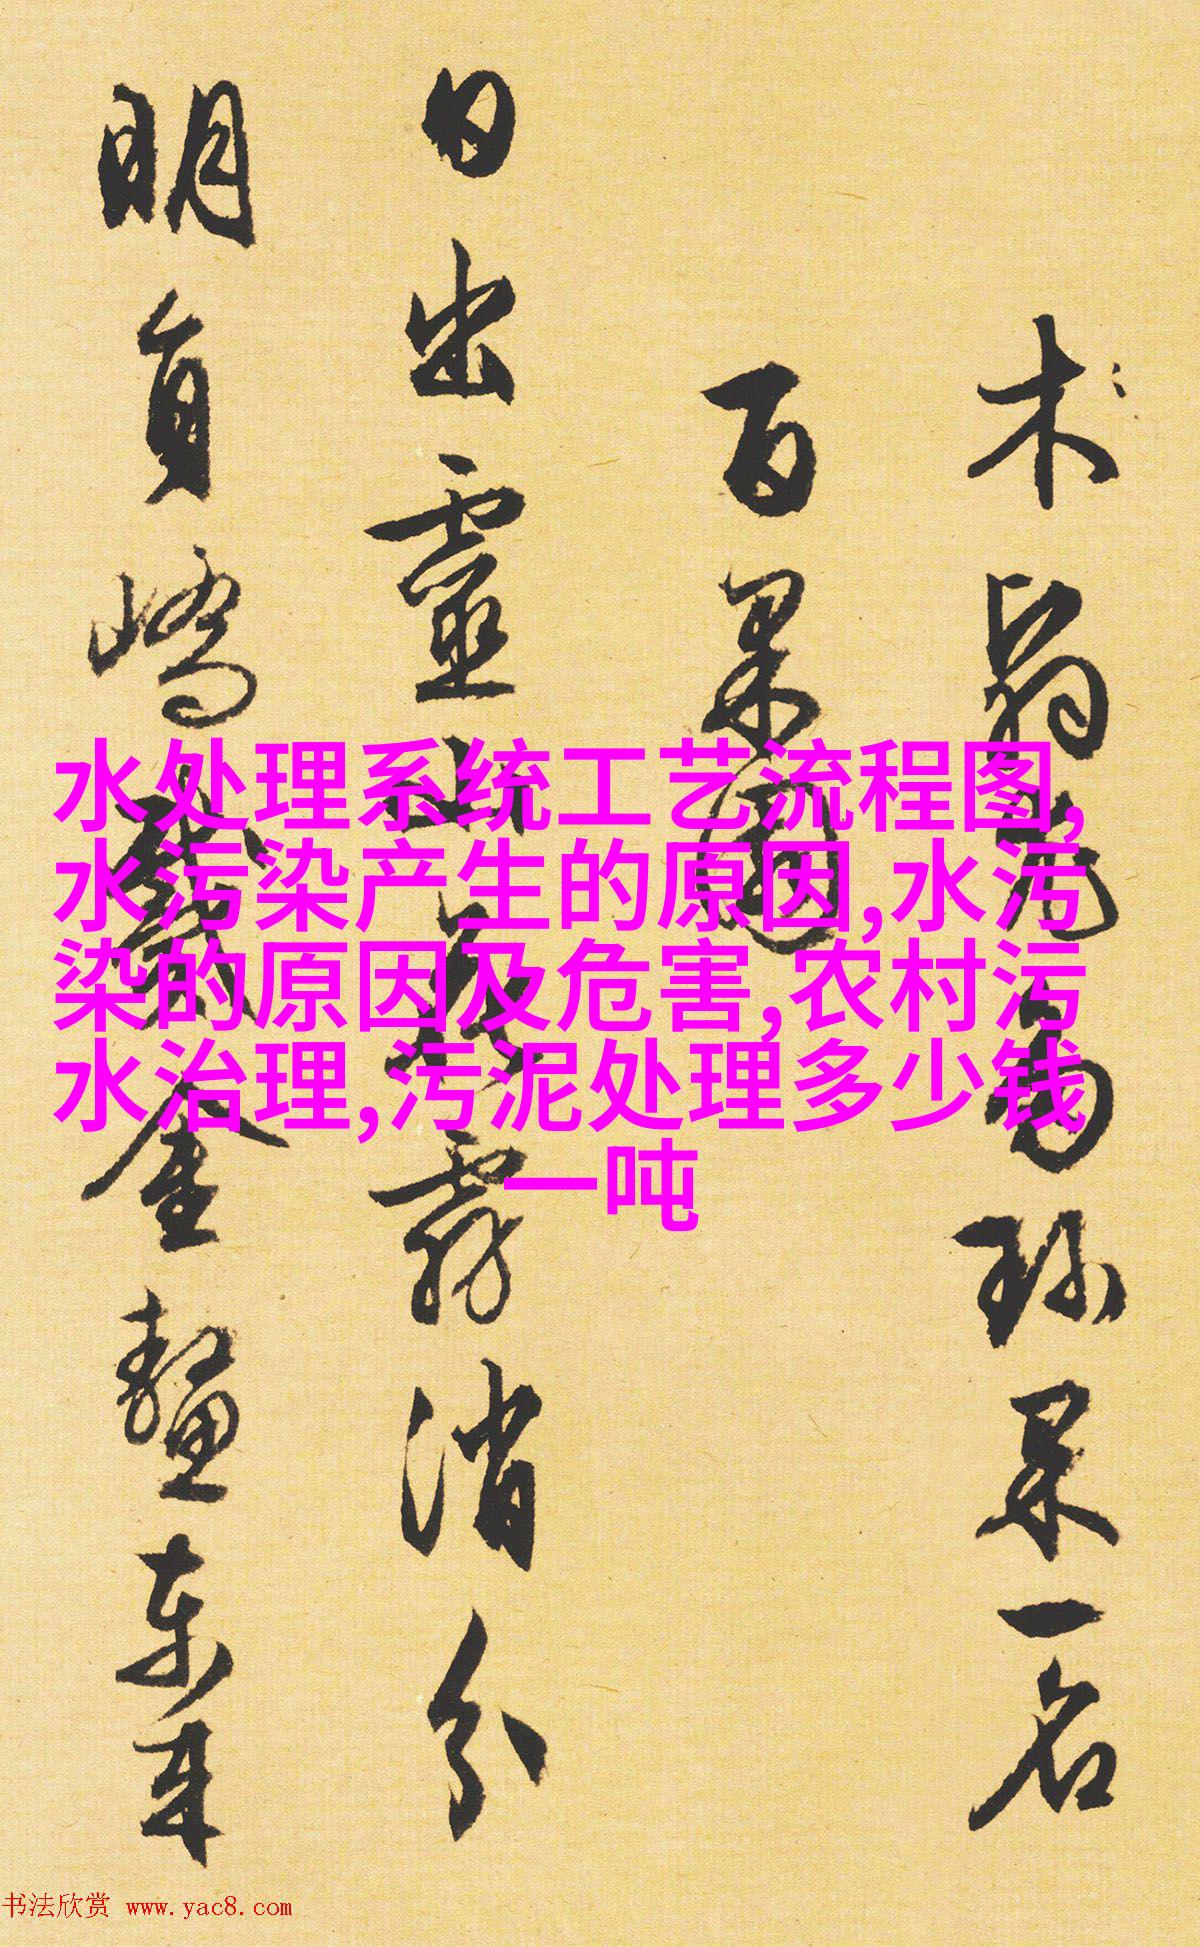 术翁先菊珍果一名
百果
日出靈山花霧消分
明員嶠戴金鼇東来
水处理系统工艺流程图,
水污染产生的原因,水污
染的原因及危害,农村污
水治理,污泥处理多少钱
一吨
书法欣赏 www.yac8.com